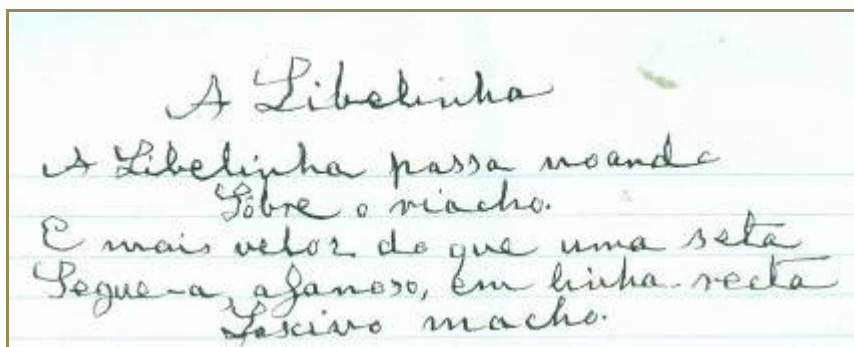 A Libelinha
A Libelinha passa voando
Sôbre o riacho.
E mais veloz do que uma seta
Segue-a, afanoso, em linha recta
Lascivo macho.